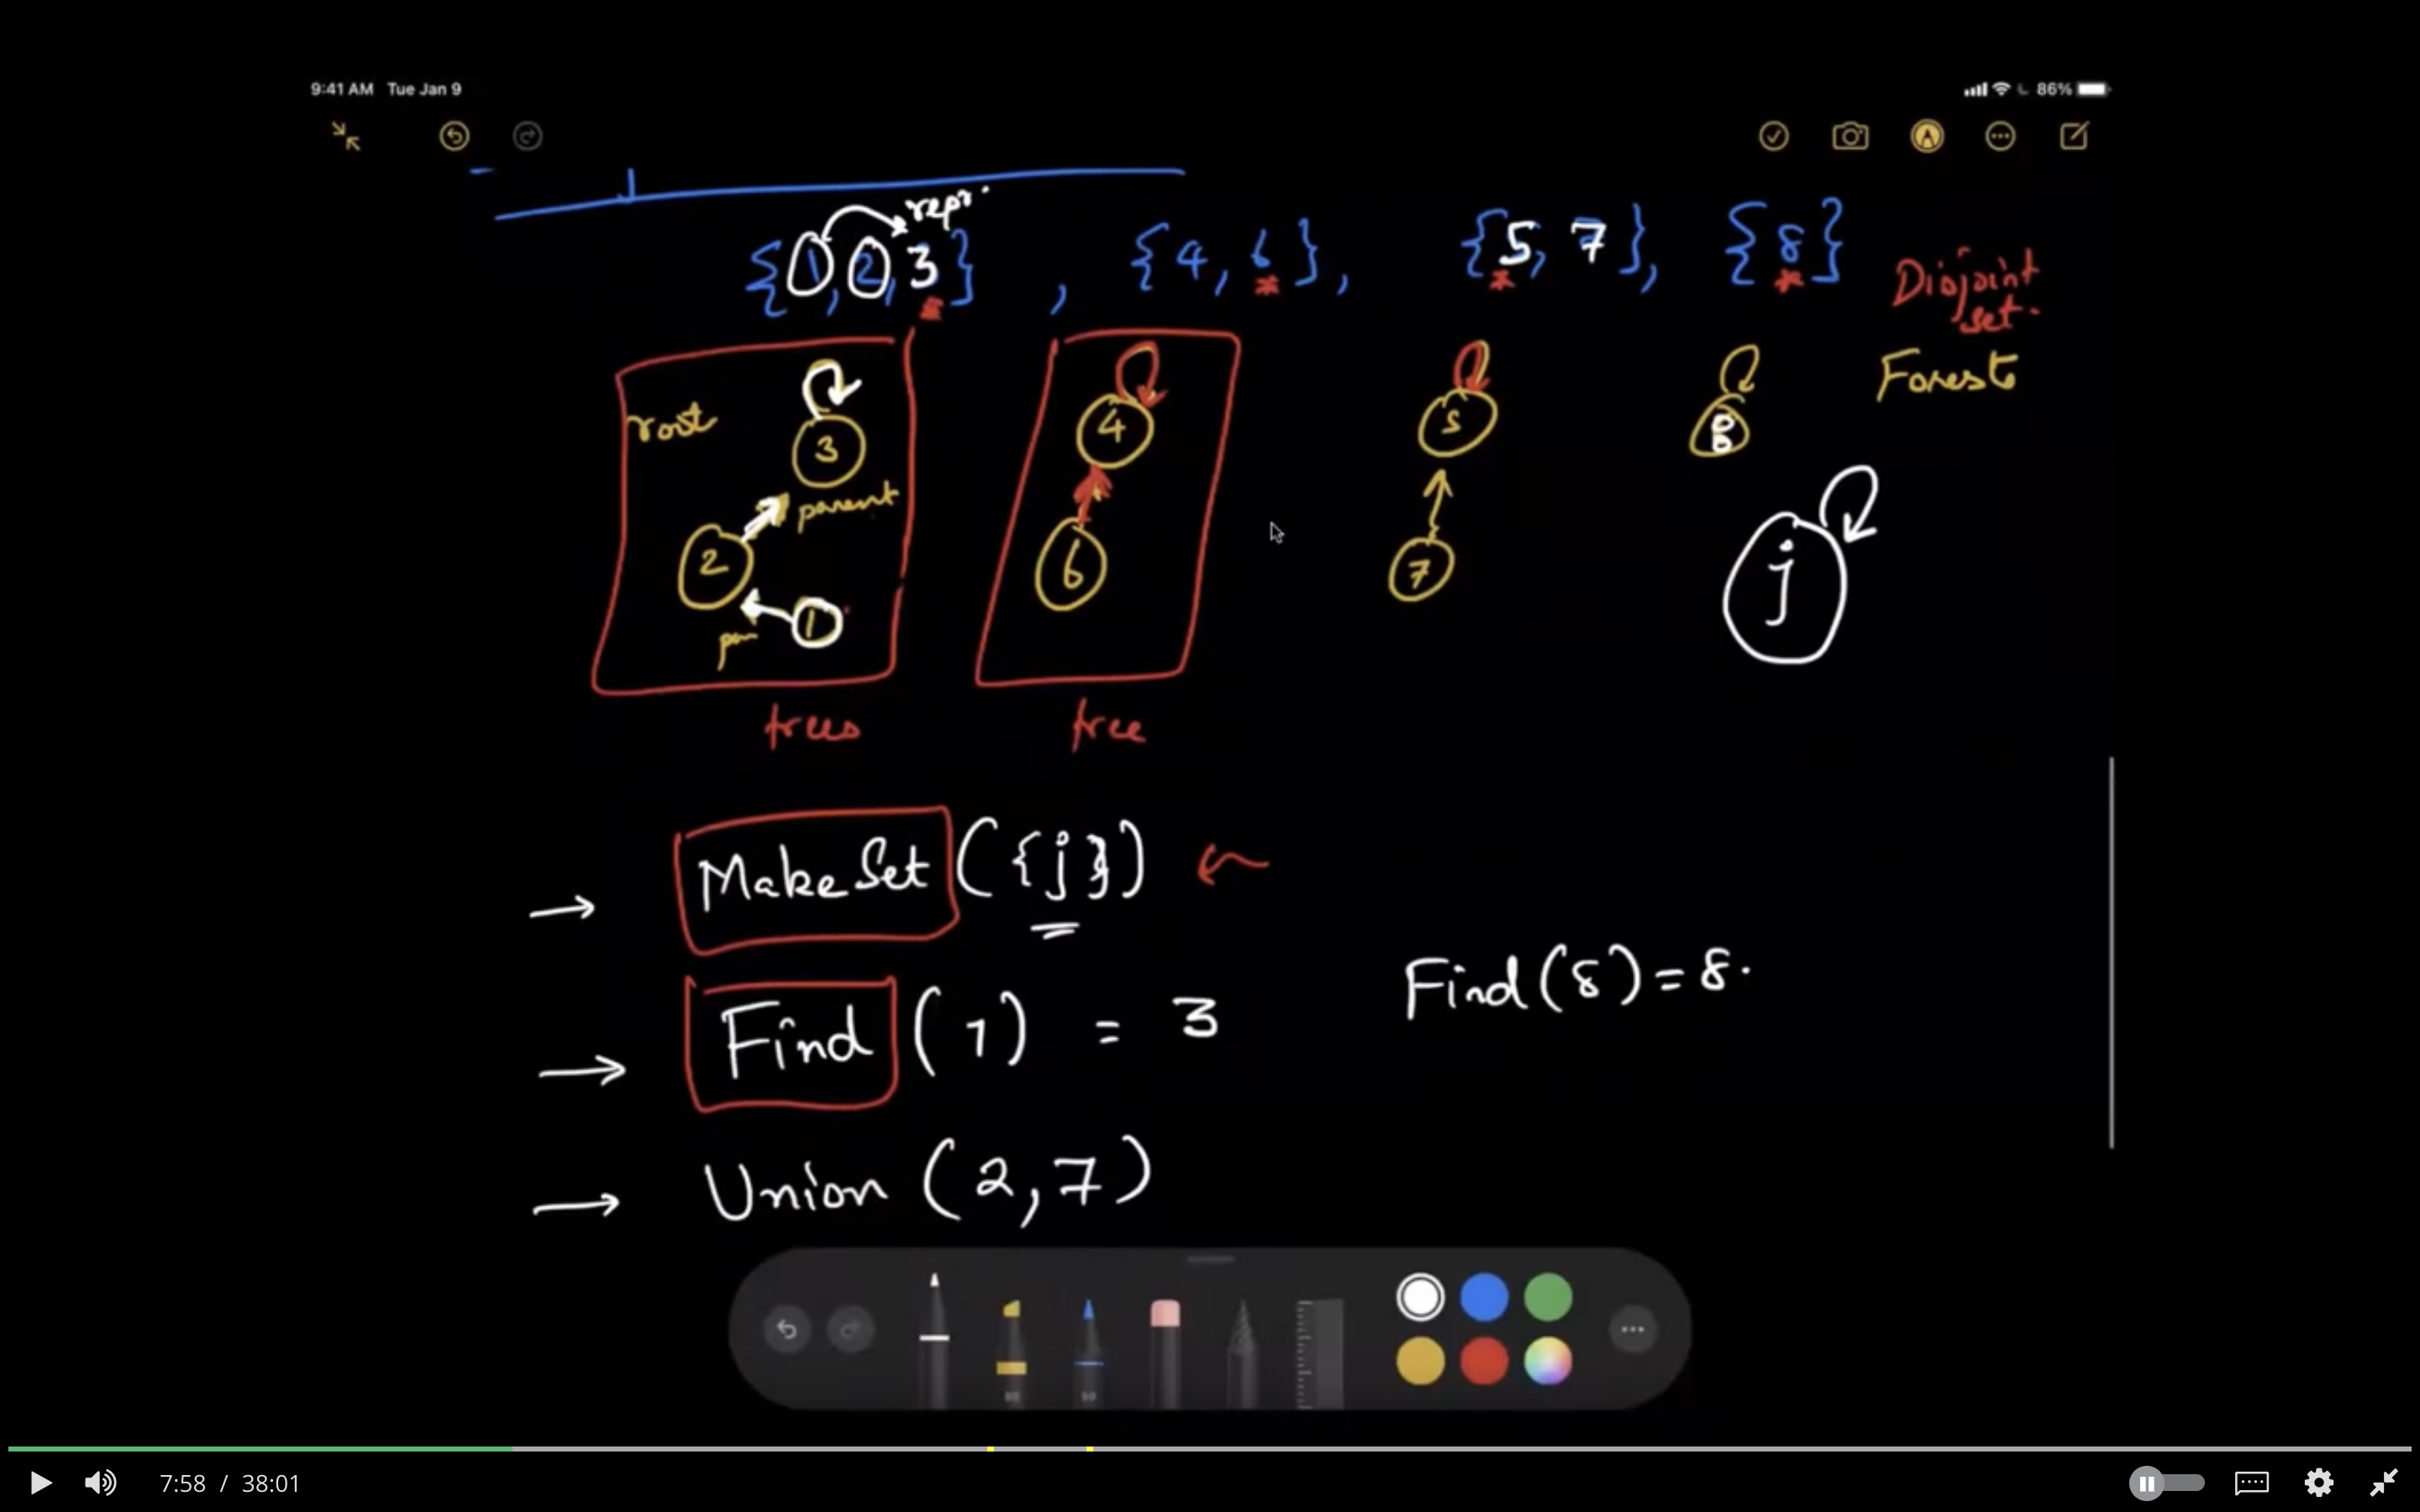 9:41 AM Tue Jan 9 86%
repr.
{1, 2, 3} , {4, 6}, {5, 7}, {8}
Disjoint
set.
Forest
root 3 4 5 8
parent
2 6 7 j
par 1
trees tree
→ MakeSet ({j}) ←
Find(8) = 8.
→ Find (1) = 3
→ Union (2,7)
80 50
7:58 / 38:01